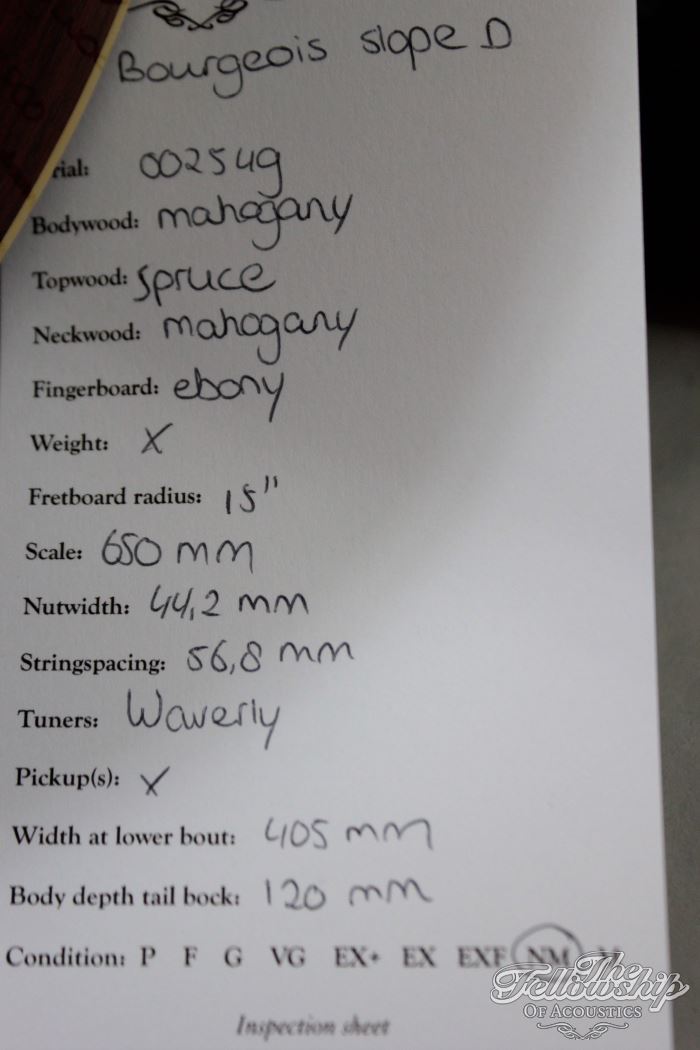 Bourgeois slope D
rial: 002549
Bodywood: mahogany
Topwood: spruce
Neckwood: mahogany
Fingerboard: ebony
Weight: X
Fretboard radius: 15"
Scale: 650 mm
Nutwidth: 44,2 mm
Stringspacing: 56,8 mm
Tuners: Waverly
Pickup(s): X
Width at lower bout: 405 mm
Body depth tail bock: 120 mm
Condition: P F G VG EX+ EX EXF NM
The
Fellowship
OF ACOUSTICS
Inspection sheet